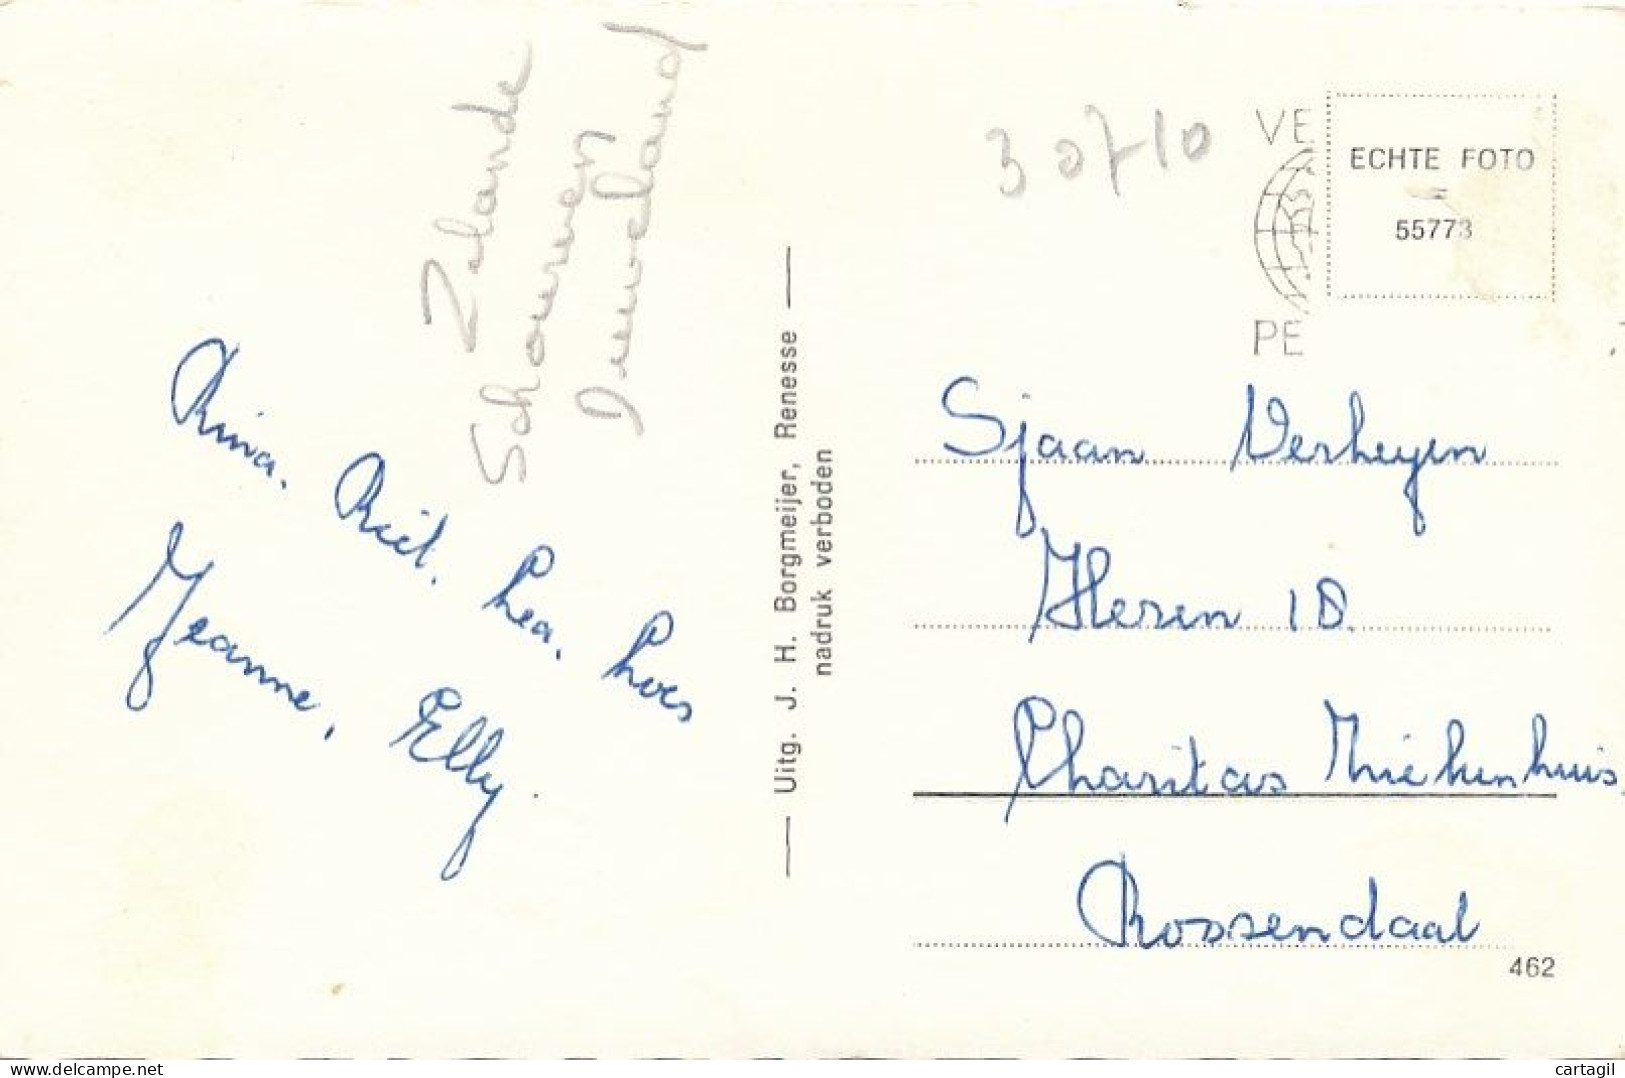 Zelande
Schouwen
Duuveland
30710
VE
PE
ECHTE FOTO
=
55773
Rina. Riet. Lea. Loes
Jeanne, Elly.
Uitg. J. H. Borgmeijer, Renesse
nadruk verboden
Sjaan Verheyen
Heren 10
Charitas Ziekenhuis
Rossendaal
462
delcampe.net
cartagil